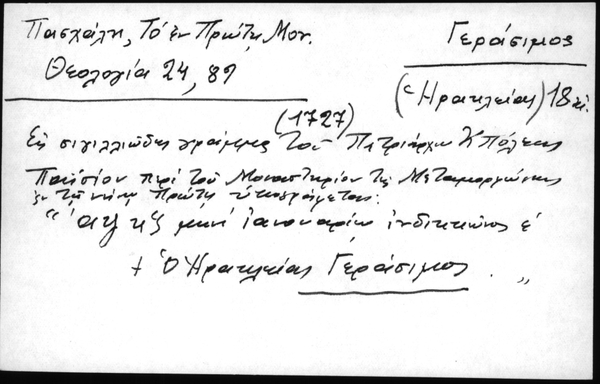 Πασχάλη, Τό ἐν Πρώτῃ Μον.
Θεολογία 24, 89
Γεράσιμος
(Ἡρακλείας) 18 αἰ.
(1727)
Εἰς σιγιλλιῶδες γράμμα τοῦ Πατριάρχου Κπόλεως
Παϊσίου περί τοῦ Μοναστηρίου τῆς Μεταμορφώσεως
ἐν τῇ νήσῳ Πρώτῃ ὑπογράφεται:
"αψκζ μηνί ἰαννουαρίῳ ἰνδικτιῶνος ε´
+ Ὁ Ἡρακλείας Γεράσιμος."